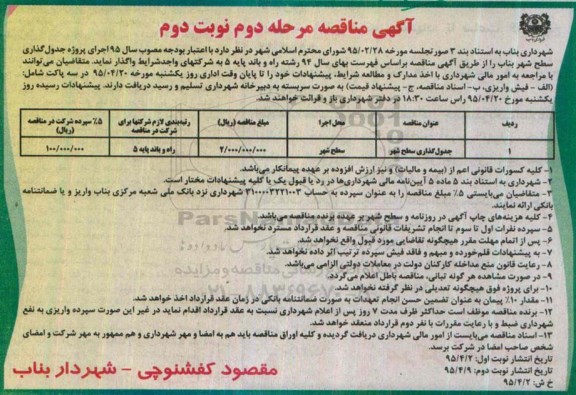 آگهی مناقصه مرحله دوم نوبت دوم
شهرداری بناب به استناد بند ۳ صورتجلسه مورخه ۹۵/۰۲/۲۸ شورای محترم اسلامی شهر در نظر دارد با اعتبار بودجه مصوب سال ۹۵ اجرای پروژه جدول گذاری
سطح شهر بناب را از طریق آگهی مناقصه براساس فهرست بهای سال ۹۴ رشته راه و باند پایه ۵ به شرکتهای واجدشرایط واگذار نماید. متقاضیان می‌توانند
با مراجعه به امور مالی شهرداری با اخذ مدارک و مطالعه شرایط، پیشنهادات خود را تا پایان وقت اداری روز یکشنبه مورخه ۹۵/۰۴/۲۰ در سه پاکت شامل:
(الف - فیش واریزی، ب- اسناد مناقصه، ج - پیشنهاد قیمت) به صورت سربسته به دبیرخانه شهرداری تسلیم و رسید دریافت دارند. پیشنهادات رسیده روز
یکشنبه مورخ ۹۵/۰۴/۲۰ راس ساعت ۱۸:۳۰ در دفتر شهرداری باز و قرائت خواهند شد.
ردیف
عنوان مناقصه
محل اجرا
مبلغ مناقصه (ریال)
رتبه‌بندی لازم شرکتها برای شرکت در مناقصه
۵٪ سپرده شرکت در مناقصه (ریال)
۱
جدول‌گذاری سطح شهر
سطح شهر
۲/۰۰۰/۰۰۰/۰۰۰
راه و باند پایه ۵
۱۰۰/۰۰۰/۰۰۰
۱- کلیه کسورات قانونی اعم از (بیمه و مالیات) و نیز ارزش افزوده بر عهده پیمانکار می‌باشد.
۲- شهرداری به استناد بند ۵ ماده ۵ آیین‌نامه مالی شهرداری‌ها در رد یا قبول یک یا کلیه پیشنهادات مختار است.
۳- متقاضیان می‌بایستی ۵٪ مبلغ مناقصه را به عنوان سپرده به حساب ۳۱۰۰۰۰۳۲۲۱۰۰۳ شهرداری نزد بانک ملی شعبه مرکزی بناب واریز و یا ضمانتنامه
بانکی ارائه نمایند.
۴- کلیه هزینه‌های چاپ آگهی در روزنامه و سطح شهر بر عهده برنده مناقصه می‌باشد.
۵- سپرده نفرات اول تا سوم تا انجام تشریفات قانونی مناقصه و عقد قرارداد مسترد نخواهد شد.
۶- پس از اتمام مهلت مقرر هیچگونه تقاضایی مورد قبول واقع نخواهد شد.
۷- به پیشنهادات قلم‌خورده و مبهم و فاقد فیش سپرده ترتیب اثر داده نخواهد شد.
۸- رعایت قانون منع مداخله کارکنان دولت در معاملات دولتی الزامی می‌باشد.
۹- در صورت مشاهده هر گونه تبانی، مناقصه باطل اعلام می‌گردد.
۱۰- برای پروژه فوق هیچگونه تعدیلی در نظر گرفته نخواهد شد.
۱۱- مقدار ۱۰٪ پیمان به عنوان تضمین حسن انجام تعهدات به صورت ضمانتنامه بانکی در زمان عقد قرارداد اخذ خواهد شد.
۱۲- برنده مناقصه موظف است حداکثر ظرف مدت ۷ روز پس از اعلام شهرداری نسبت به عقد قرارداد اقدام نماید در غیر این صورت سپرده واریزی به نفع
شهرداری ضبط و با رعایت مقررات با نفر دوم قرارداد منعقد خواهد شد.
۱۳- اسناد مناقصه می‌بایست از امور مالی شهرداری دریافت گردیده و کلیه اوراق مناقصه باید هم به امضا و مهر شهرداری و هم ممهور به مهر شرکت و امضای
شخص صاحب امضا در شرکت برسد.
تاریخ انتشار نوبت اول: ۹۵/۴/۲
تاریخ انتشار نوبت دوم: ۹۵/۴/۹
خ ش: ۹۵/۴/۲
مقصود کفشنوچی - شهردار بناب